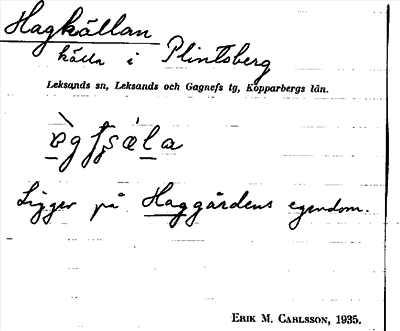 Hagkällan
källa i Plintsberg
Leksands sn, Leksands och Gagnefs tg, Kopparbergs län.
Ligger på Haggårdens egendom.
ERIK M. CARLSSON, 1935.